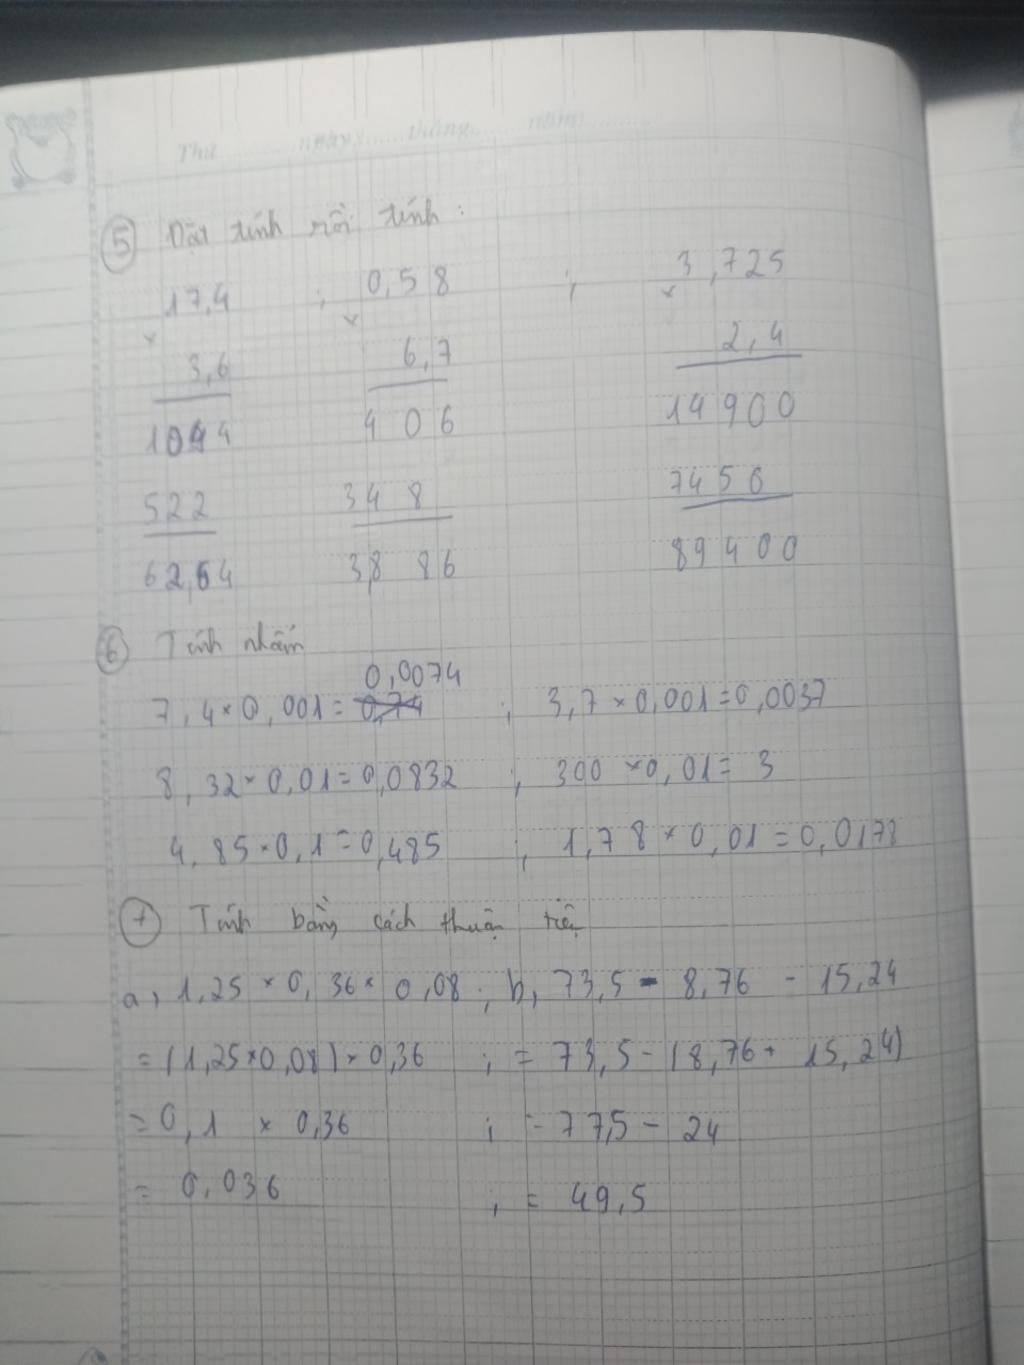 Thứ ........ ngày ........ tháng ........ năm ........
5 Đặt tính rồi tính:
17,4 ; 0,58 ; 3,725
× × ×
3,6 6,7 2,4
1044 406 14900
522 348 7450
62,64 3,886 89400
6 Tính nhẩm
0,0074
7,4 × 0,001 = 0,74 ; 3,7 × 0,001 = 0,0037
8,32 × 0,01 = 0,0832 ; 300 × 0,01 = 3
4,85 × 0,1 = 0,485 ; 1,78 × 0,01 = 0,0178
7 Tính bằng cách thuận tiện
a, 1,25 × 0,36 × 0,08 ; b, 73,5 - 8,76 - 15,24
= (1,25 × 0,08) × 0,36 ; = 73,5 - (8,76 + 15,24)
= 0,1 × 0,36 ; = 77,5 - 24
= 0,036 ; = 49,5